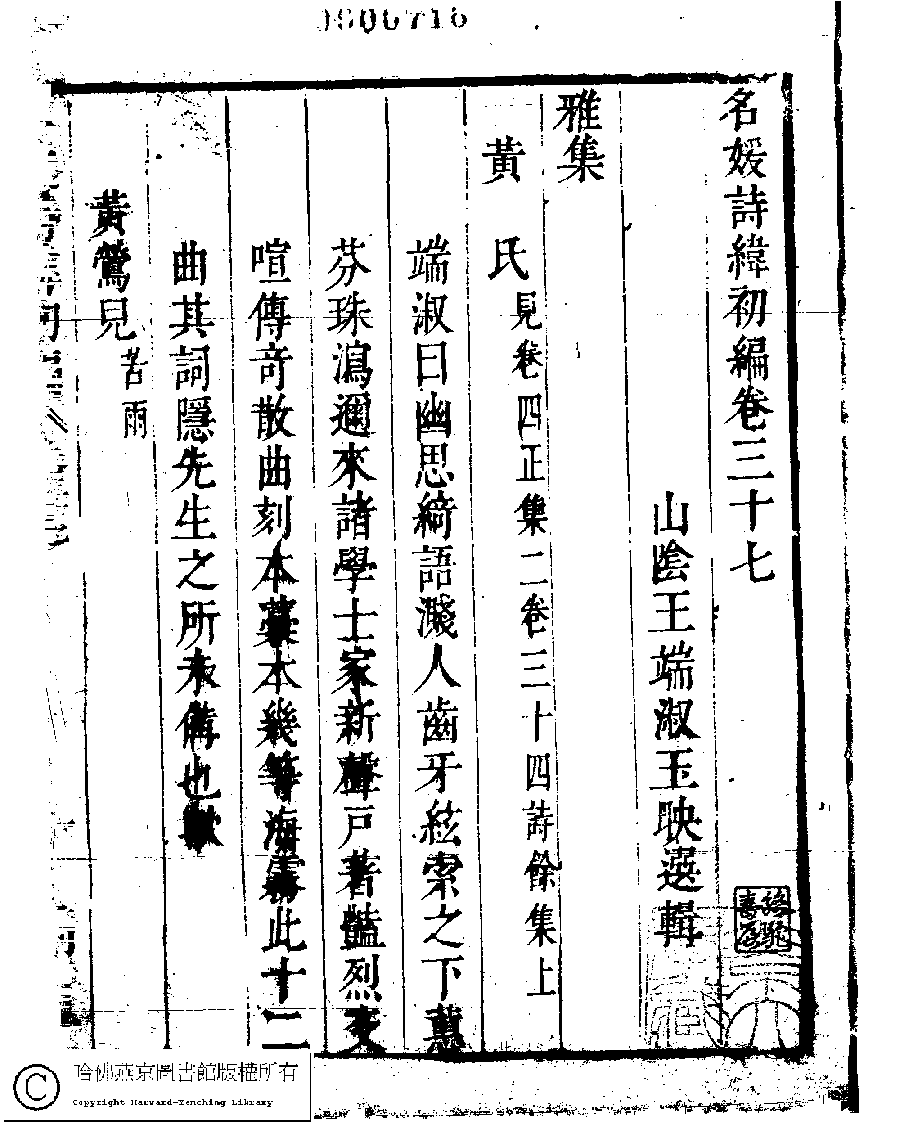 名媛詩緯初編卷三十七
山陰王端淑玉映選輯
雅集
黃氏 見卷四正集二卷三十四詩餘集上
端淑曰幽思綺語濺人齒牙絃索之下蕙
芬珠瀉邇來諸學士家新聲戶著豔烈交
喧傳奇散曲刻本藁本幾等海
此十二
曲其詞隱先生之所未備也歟
黃鶯兒 苦雨
哈佛燕京圖書館版權所有
Copyright Harvard-Yenching Library